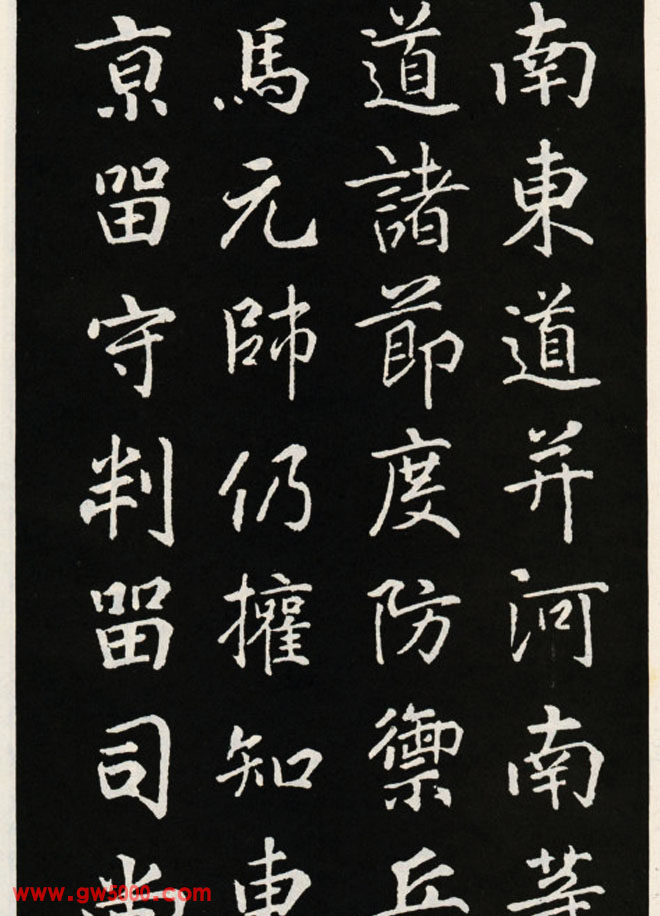 南東道并河南等
道諸節度防禦兵
馬元帥仍權知東
京留守判留司尚
www.gw5000.com